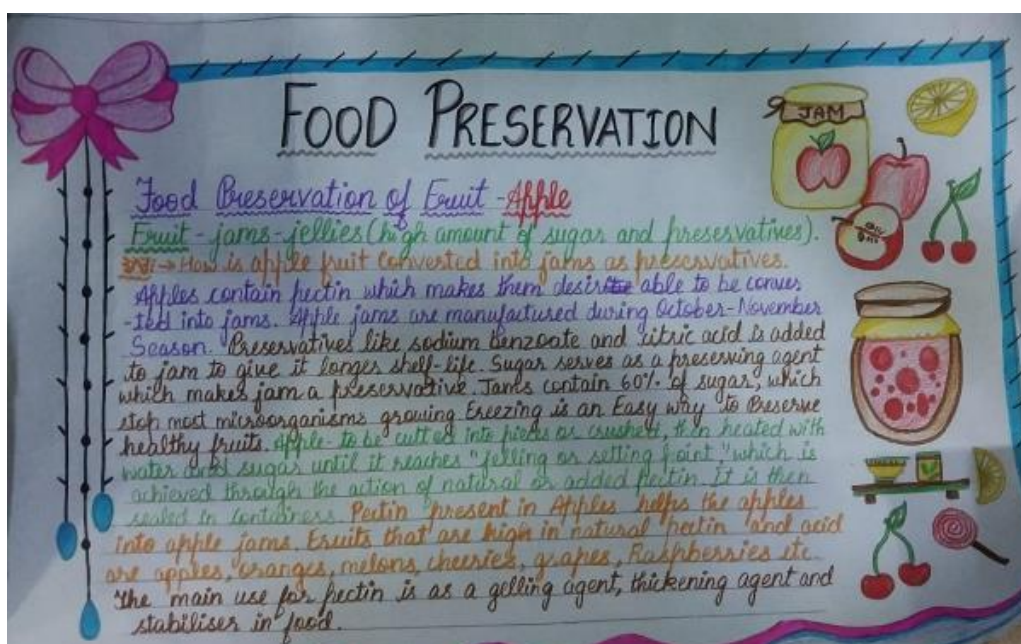 FOOD PRESERVATION
JAM
Food Preservation of Fruit - Apple
Fruit - jams - jellies (high amount of sugar and preservatives).
→ How is apple fruit converted into jams as preservatives.
Apples contain pectin which makes them desir able to be conver
-ted into jams. Apple jams are manufactured during October-November
Season. Preservatives like sodium benzoate and citric acid is added
to jam to give it longer shelf-life. Sugar serves as a preserving agent
which makes jam a preservative. Jams contain 60% of sugar, which
stop most microorganisms growing Freezing is an Easy way to Preserve
healthy fruits. Apple - to be cutted into pieces or crushed, then heated with
water and sugar until it reaches "jelling or setting point" which is
achieved through the action of natural or added pectin. It is then
sealed in containers. Pectin present in Apples helps the apples
into apple jams. Fruits that are high in natural pectin and acid
are apples, oranges, melons, cheeries, grapes, Raspberries etc
The main use for pectin is as a gelling agent, thickening agent and
stabiliser in food.